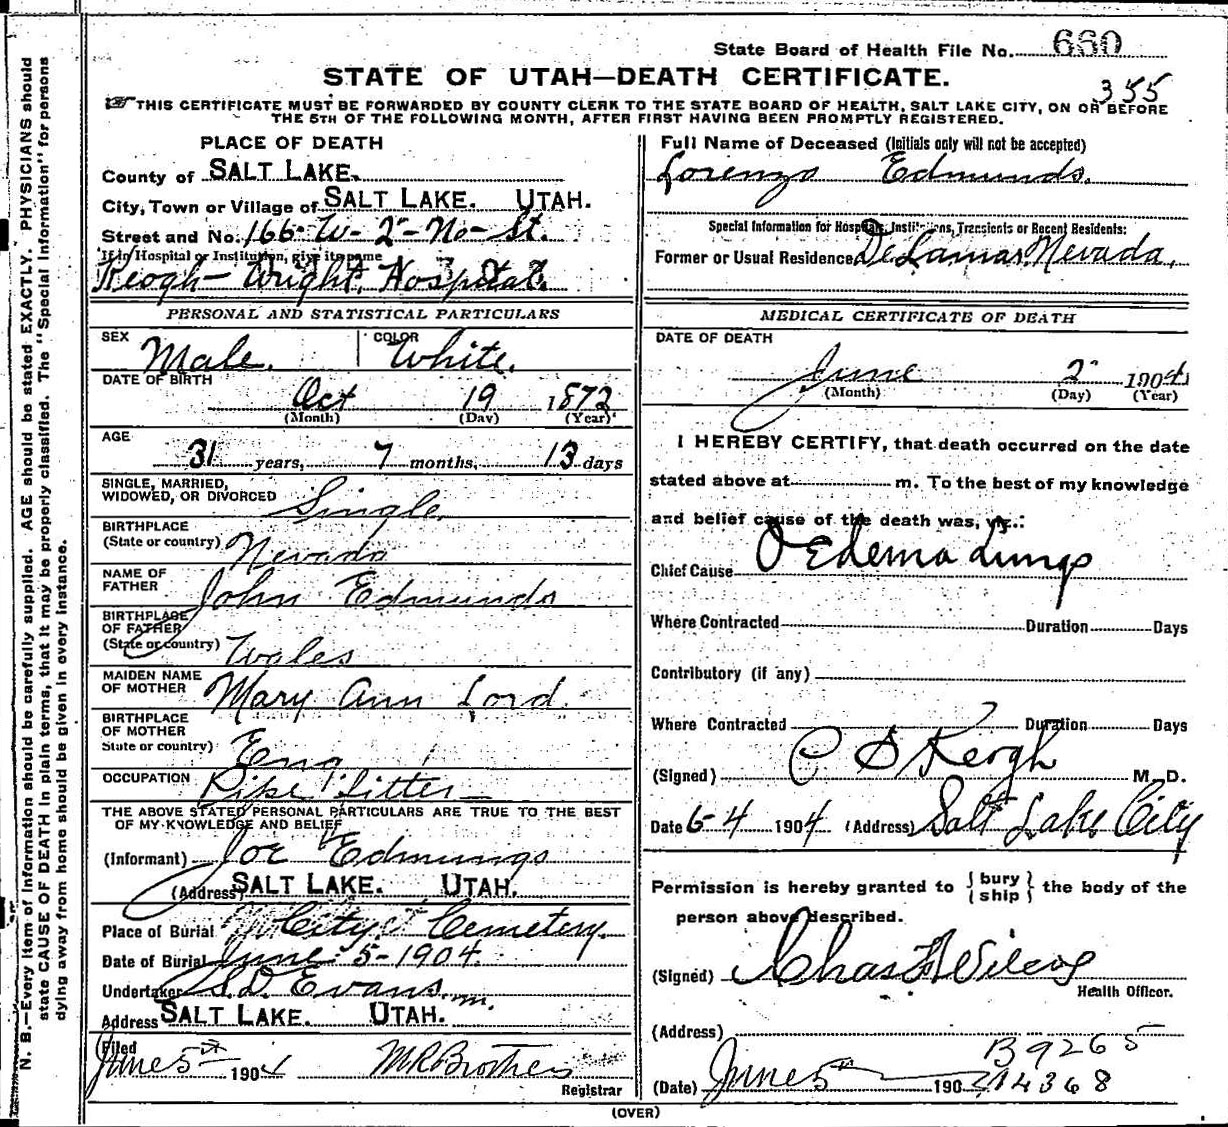 State Board of Health File No. 660
STATE OF UTAH—DEATH CERTIFICATE.
355
THIS CERTIFICATE MUST BE FORWARDED BY COUNTY CLERK TO THE STATE BOARD OF HEALTH, SALT LAKE CITY, ON OR BEFORE
THE 5TH OF THE FOLLOWING MONTH, AFTER FIRST HAVING BEEN PROMPTLY REGISTERED.
N. B.—Every item of information should be carefully supplied. AGE should be stated EXACTLY. PHYSICIANS should
state CAUSE OF DEATH in plain terms, that it may be properly classified. The "Special Information" for persons
dying away from home should be given in every instance.
PLACE OF DEATH
County of SALT LAKE.
City, Town or Village of SALT LAKE. UTAH.
Street and No. 166-W-2-No-St.
If in Hospital or Institution, give its name
Keogh-Wright Hospital.
PERSONAL AND STATISTICAL PARTICULARS
SEX Male. COLOR White.
DATE OF BIRTH
Oct 19 1872
(Month) (Day) (Year)
AGE
31 years, 7 months, 13 days
SINGLE, MARRIED,
WIDOWED, OR DIVORCED Single
BIRTHPLACE
(State or country) Nevada
NAME OF
FATHER John Edmunds
BIRTHPLACE
OF FATHER
(State or country) Wales
MAIDEN NAME
OF MOTHER Mary Ann Lord
BIRTHPLACE
OF MOTHER
State or country) Eng
OCCUPATION Pipe fitter
THE ABOVE STATED PERSONAL PARTICULARS ARE TRUE TO THE BEST
OF MY KNOWLEDGE AND BELIEF
(Informant) Joe Edmunds
(Address) SALT LAKE. UTAH.
Place of Burial City Cemetery.
Date of Burial June 5-1904.
Undertaker S.D. Evans.
Address SALT LAKE. UTAH.
Filed
June 5th 1904 Registrar
Full Name of Deceased (Initials only will not be accepted)
Lorenzo Edmunds.
Special Information for Hospitals, Institutions, Transients or Recent Residents:
Former or Usual Residence DeLamar Nevada.
MEDICAL CERTIFICATE OF DEATH
DATE OF DEATH
June 2 1904
(Month) (Day) (Year)
I HEREBY CERTIFY, that death occurred on the date
stated above at m. To the best of my knowledge
and belief cause of the death was, viz.:
Chief Cause OEdema Lungs
Where Contracted Duration Days
Contributory (if any)
Where Contracted Duration Days
(Signed) C S Keogh M. D.
Date 6-4 1904 (Address) Salt Lake City
Permission is hereby granted to {bury
ship} the body of the
person above described.
(Signed) Chas F Wilcox
Health Officer.
(Address)
B9265
(Date) June 5th 190 14368
(OVER)